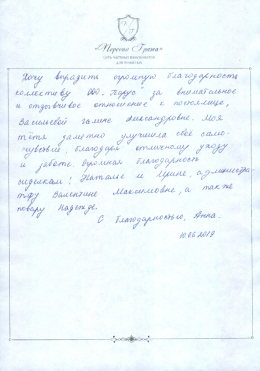 Хочу выразить огромную благодарность
коллективу ООО "Парус" за внимательное
и отзывчивое отношение к постоялице,
Васильевой Галине Александровне. Моя
тётя заметно улучшила своё само-
чувствие, благодаря отличному уходу
и заботе. Огромная благодарность
сиделкам: Наталье и Ирине, администра-
тору Валентине Максимовне, а также
повару Надежде.
С благодарностью, Анна.